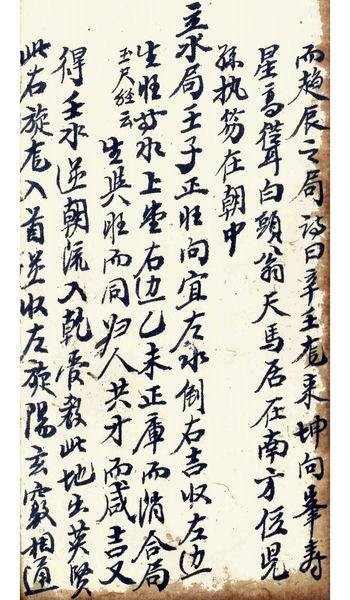 而趋辰之局詩曰辛壬龙来坤向峯寿
星高从耳白頭翁天馬居在南方位児
孫执笏在朝中
立水局壬子正旺向宜左水倒右吉收左边
生旺方水上堂右边乙未正庫而消合局
玉尺经云
生與旺而同归人共才而咸吉又
得壬水逆朝流入乾爱教此地出英贤
此右旋龙入首逆收左旋陽玄竅相通